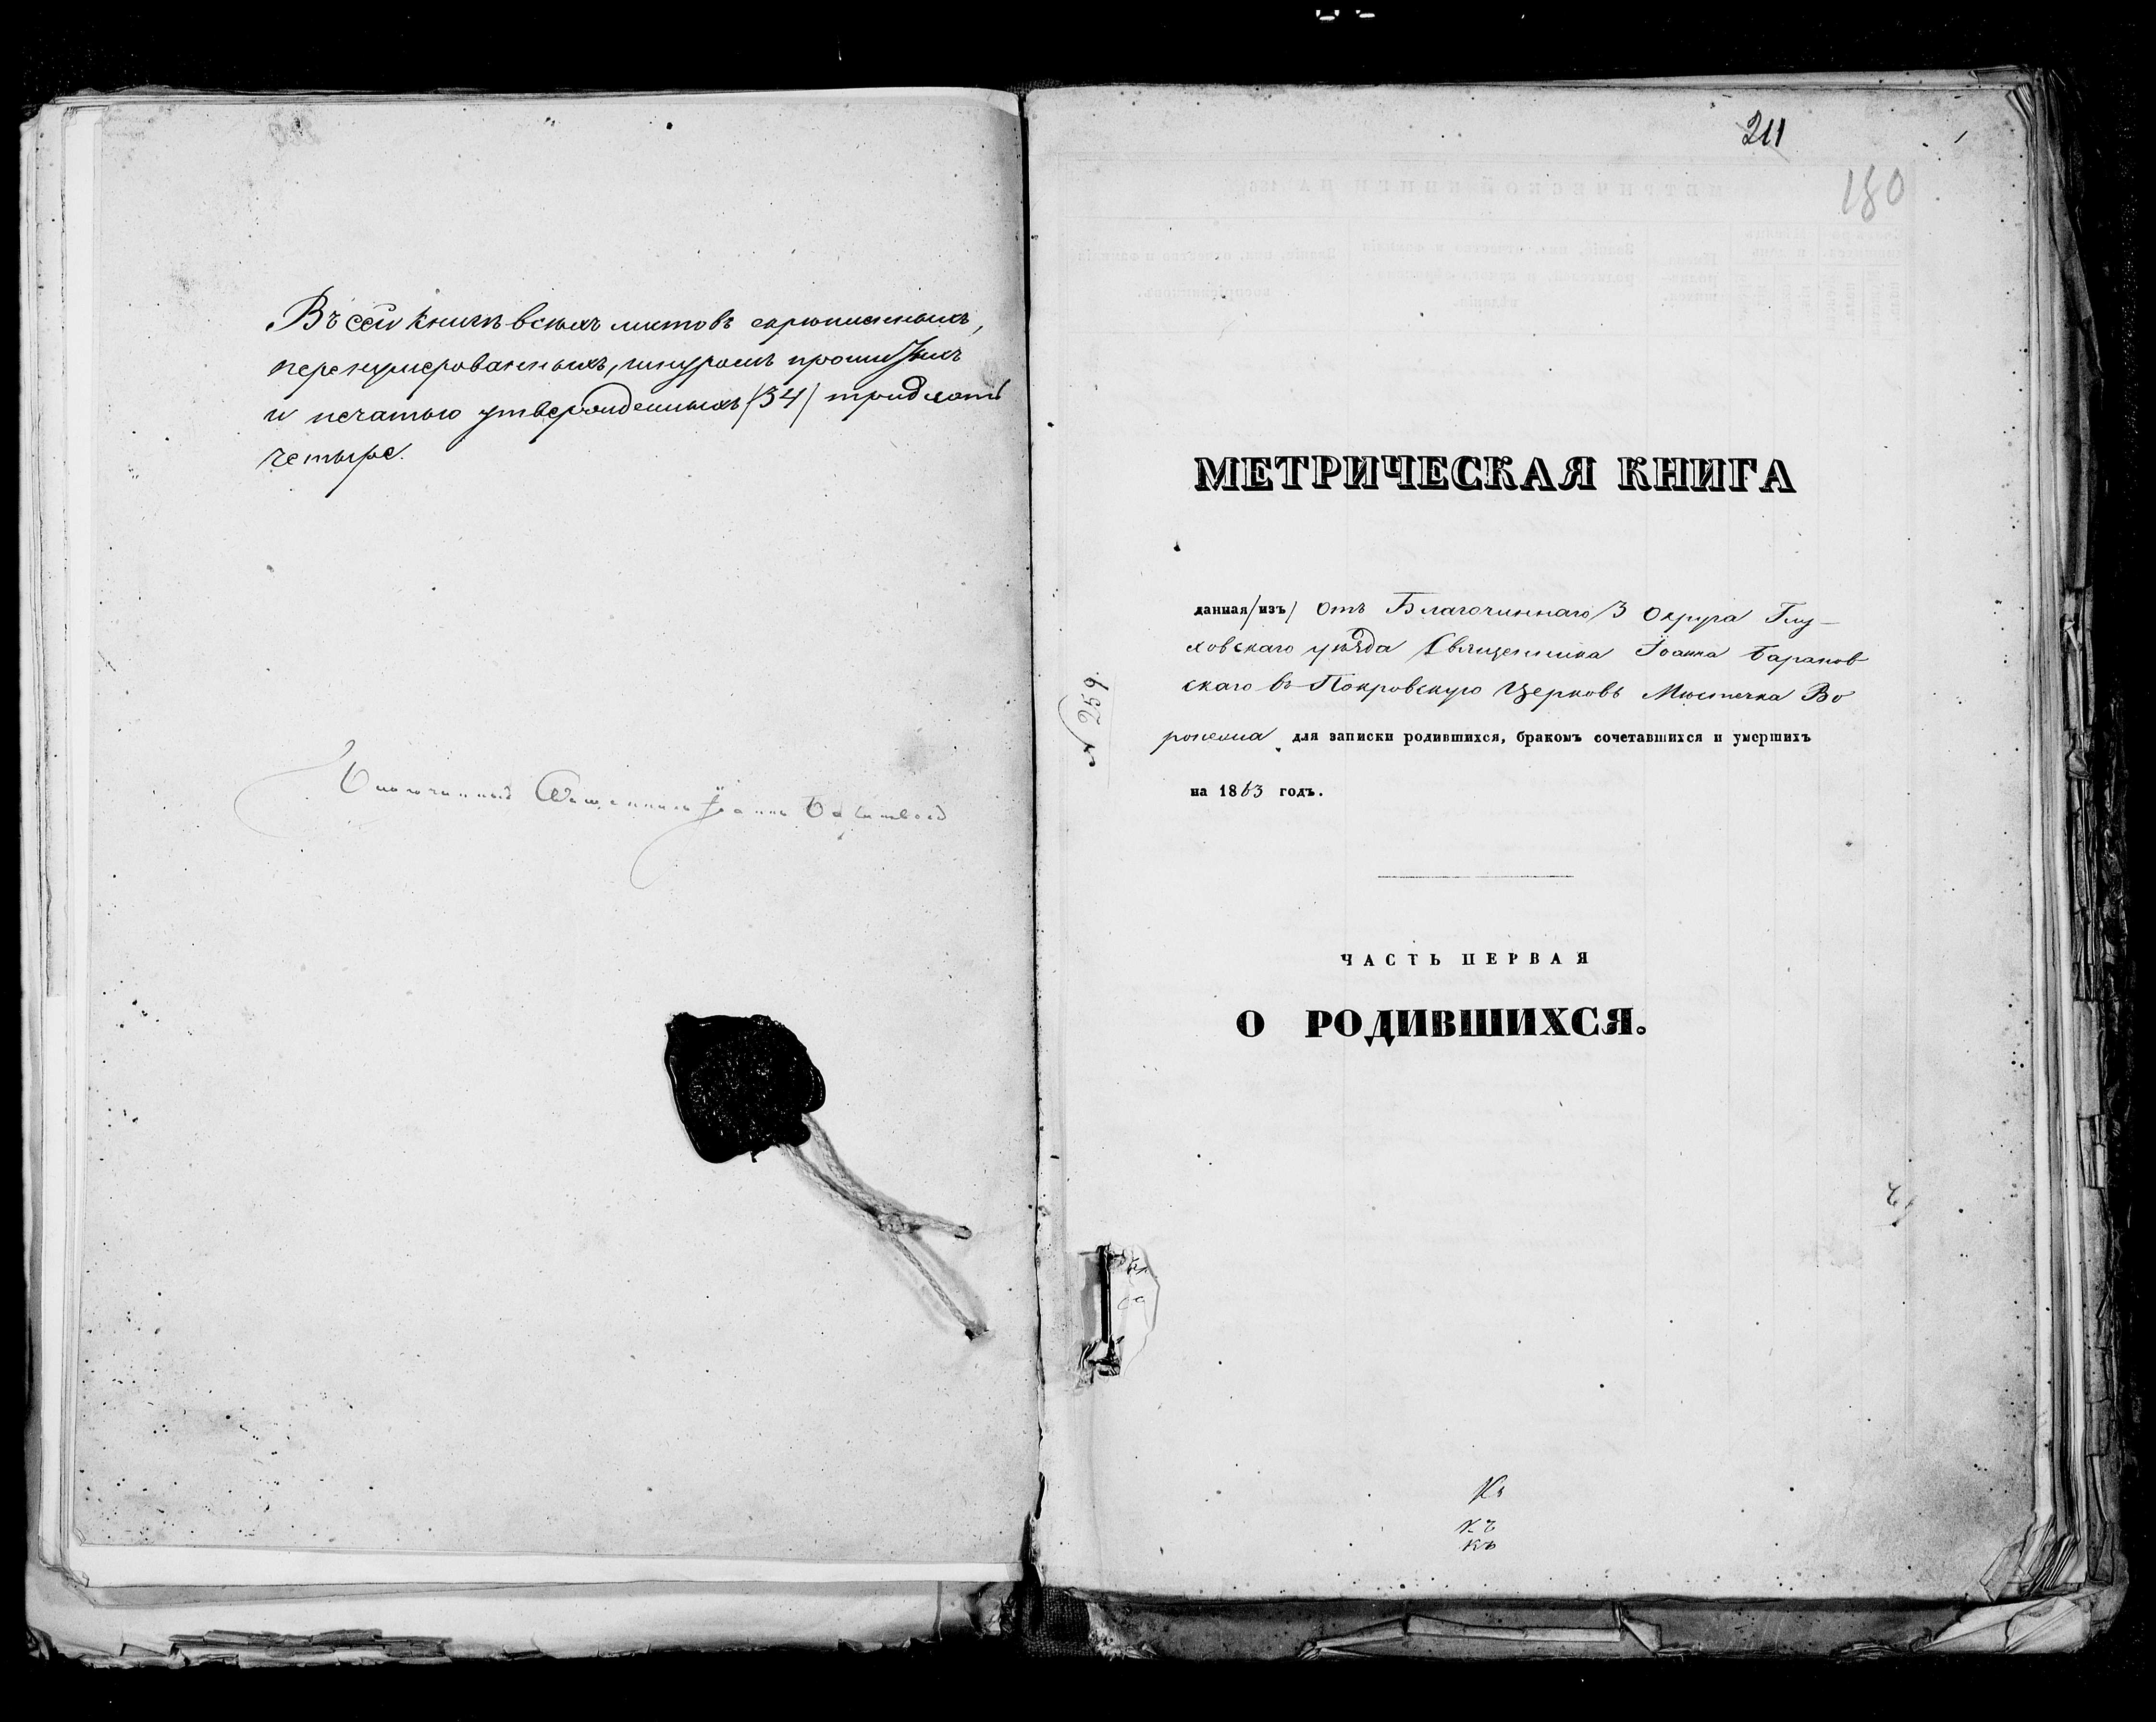 Въ сей книгѣ всѣхъ листовъ скрѣпленныхъ,
перенумерованныхъ, шнуромъ прошитыхъ
и печатью утвержденныхъ (34) тридцать
четыре.
Благочинный Священникъ Іоаннъ
211
180
МЕТРИЧЕСКАЯ КНИГА
данная (изъ) Отъ Благочиннаго 3 Округа Глу-
ховскаго уѣзда Священника Іоанна Баранов-
скаго въ Покровскую Церковь Мѣстечка Во
ронежа для записки родившихся, бракомъ сочетавшихся и умершихъ
на 1863 годъ.
№ 259.
ЧАСТЬ ПЕРВАЯ
О РОДИВШИХСЯ.
къ